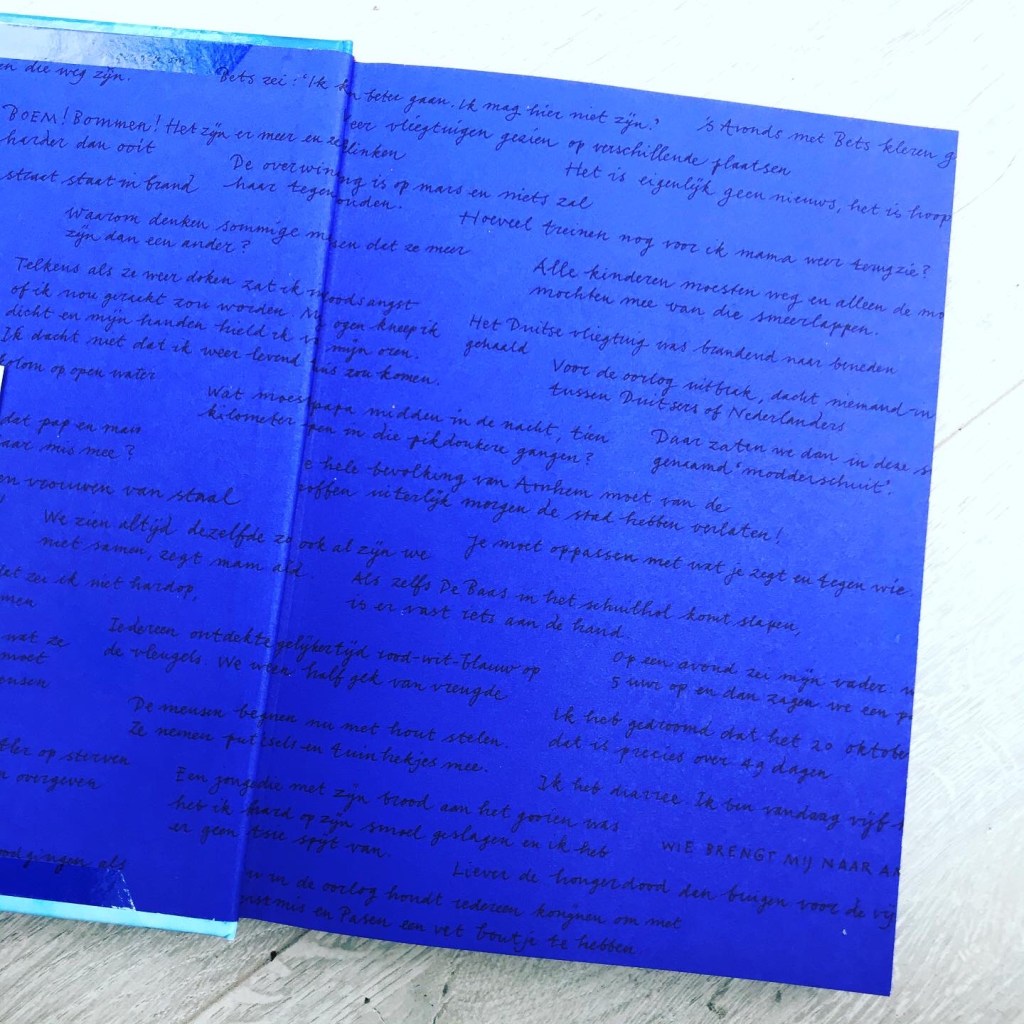 en die weg zijn.
Bets zei: 'Ik k beter gaan. Ik mag hier niet zijn.'
's Avonds met Bets kleren g
BOEM! Bommen! Het zijn er meer en ze klinken
harder dan ooit
eer vliegtuigen gezien op verschillende plaatsen
straat staat in brand
De overwinning is op mars en niets zal
haar tegenhouden.
Het is eigenlijk geen nieuws, het is hoop
Waarom denken sommige mensen dat ze meer
zijn dan een ander?
Hoeveel treinen nog voor ik mama weer terugzie?
Telkens als ze weer doken zat ik in doodsangst
of ik nou geraakt zou worden. M ogen kneep ik
dicht en mijn handen hield ik v mijn oren.
Ik dacht niet dat ik weer levend uis zou komen.
Alle kinderen moesten weg en alleen de mo
mochten mee van die smeerlappen.
Het Duitse vliegtuig was brandend naar beneden
gehaald
kolom op open water
Voor de oorlog uitbrak, dacht niemand in
tussen Duitsers of Nederlanders
Wat moest papa midden in de nacht, tien
kilometer pen in die pikdonkere gangen?
Daar zaten we dan in deze s
genaamd 'modderschuit'.
dat pap en mam
aar mis mee?
e hele bevolking van Arnhem moet van de
offen uiterlijk morgen de stad hebben verlaten!
en vrouwen van staal
We zien altijd dezelfde zo ook al zijn we
niet samen, zegt mam altijd.
Je moet oppassen met wat je zegt en tegen wie.
et zei ik niet hardop,
men
Als zelfs De Baas in het schuilhol komt slapen,
is er vast iets aan de hand.
wat ze
moet
ensen
Iedereen ontdekte gelijkertijd rood-wit-blauw op
de vleugels. We waren half gek van vreugde
Op een avond zei mijn vader: w
5 uur op en dan zagen we een p
De mensen beginnen nu met hout stelen.
Ze nemen putdeksels en tuinhekjes mee.
Ik heb gedroomd dat het 20 oktober
dat is precies over 49 dagen
tler op sterven
n overgeven
Een jongen die met zijn brood aan het gooien was
heb ik hard op zijn smoel geslagen en ik heb
er geen spijt van.
Ik heb diarree. Ik ben vandaag vijf
WIE BRENGT MIJ NAAR A
ood gingen als
Liever de hongerdood dan buigen voor de vij
u in de oorlog houdt iedereen konijnen om met
erstmis en Pasen een vet boutje te hebben